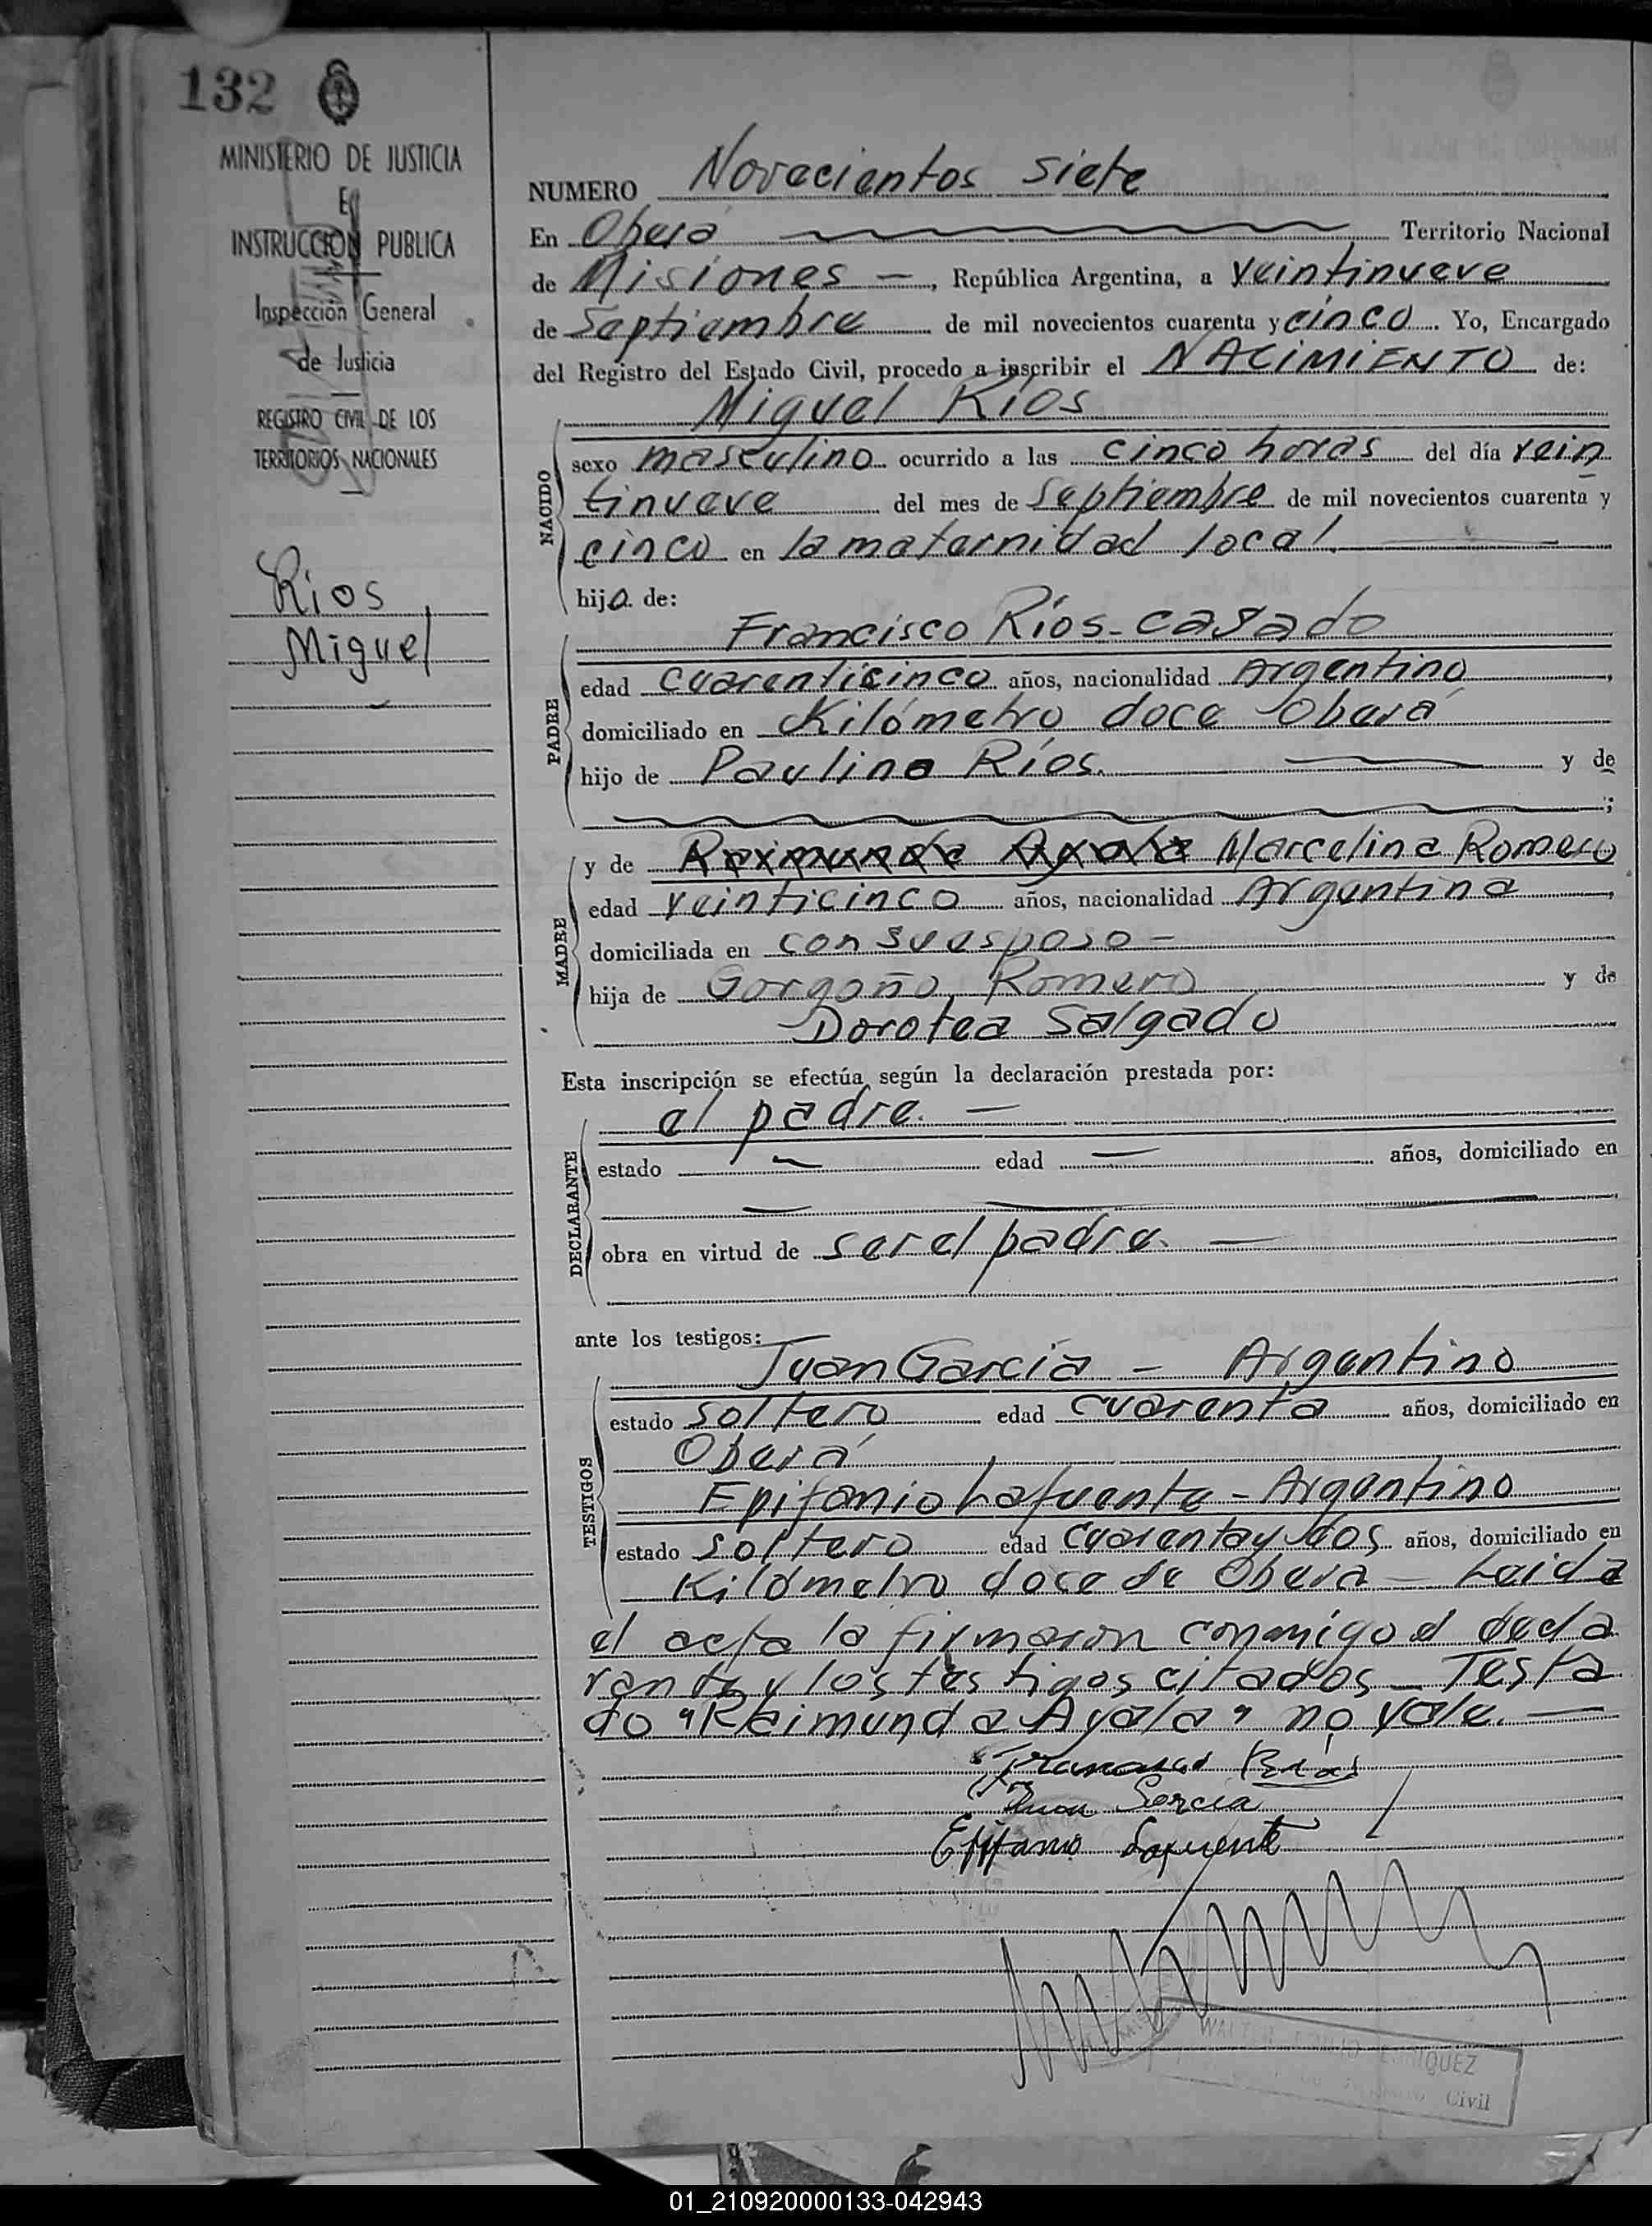 132
MINISTERIO DE JUSTICIA
E
INSTRUCCION PUBLICA
Inspección General
de Justicia
REGISTRO CIVIL DE LOS
TERRITORIOS NACIONALES
Rios
Miguel
NUMERO Novecientos siete
En Oberá Territorio Nacional
de Misiones —, República Argentina, a veintinueve
de Septiembre de mil novecientos cuarenta y cinco. Yo, Encargado
del Registro del Estado Civil, procedo a inscribir el NACIMIENTO de:
Miguel Ríos
NACIDO
sexo masculino ocurrido a las cinco horas del día vein
tinueve del mes de Septiembre de mil novecientos cuarenta y
cinco en la maternidad local.
hijo de:
Francisco Ríos - casado
PADRE
edad cuarenticinco años, nacionalidad Argentino,
domiciliado en Kilómetro doce Oberá
hijo de Paulino Ríos. y de
;
MADRE
y de Raimunda Ayala Marcelina Romero
edad veinticinco años, nacionalidad Argentina,
domiciliada en con su esposo -
hija de Gorgoño Romero y de
Dorotea Salgado
Esta inscripción se efectúa según la declaración prestada por:
el padre. —
DECLARANTE
estado — edad — años, domiciliado en
obra en virtud de ser el padre. —
ante los testigos:
Juan García - Argentino
TESTIGOS
estado soltero edad cuarenta años, domiciliado en
Oberá
Epifanio Lafuente - Argentino
estado soltero edad cuarenta y dos años, domiciliado en
Kilómetro doce de Oberá - Leida
el acta la firmaron conmigo el decla
rante y los testigos citados - Testa
do "Raimunda Ayala" no vale. —
Francisco Ríos
Juan Garcia
Epifanio Lafuente
WALTER EMILIO ENRIQUEZ
Civil
01_210920000133-042943